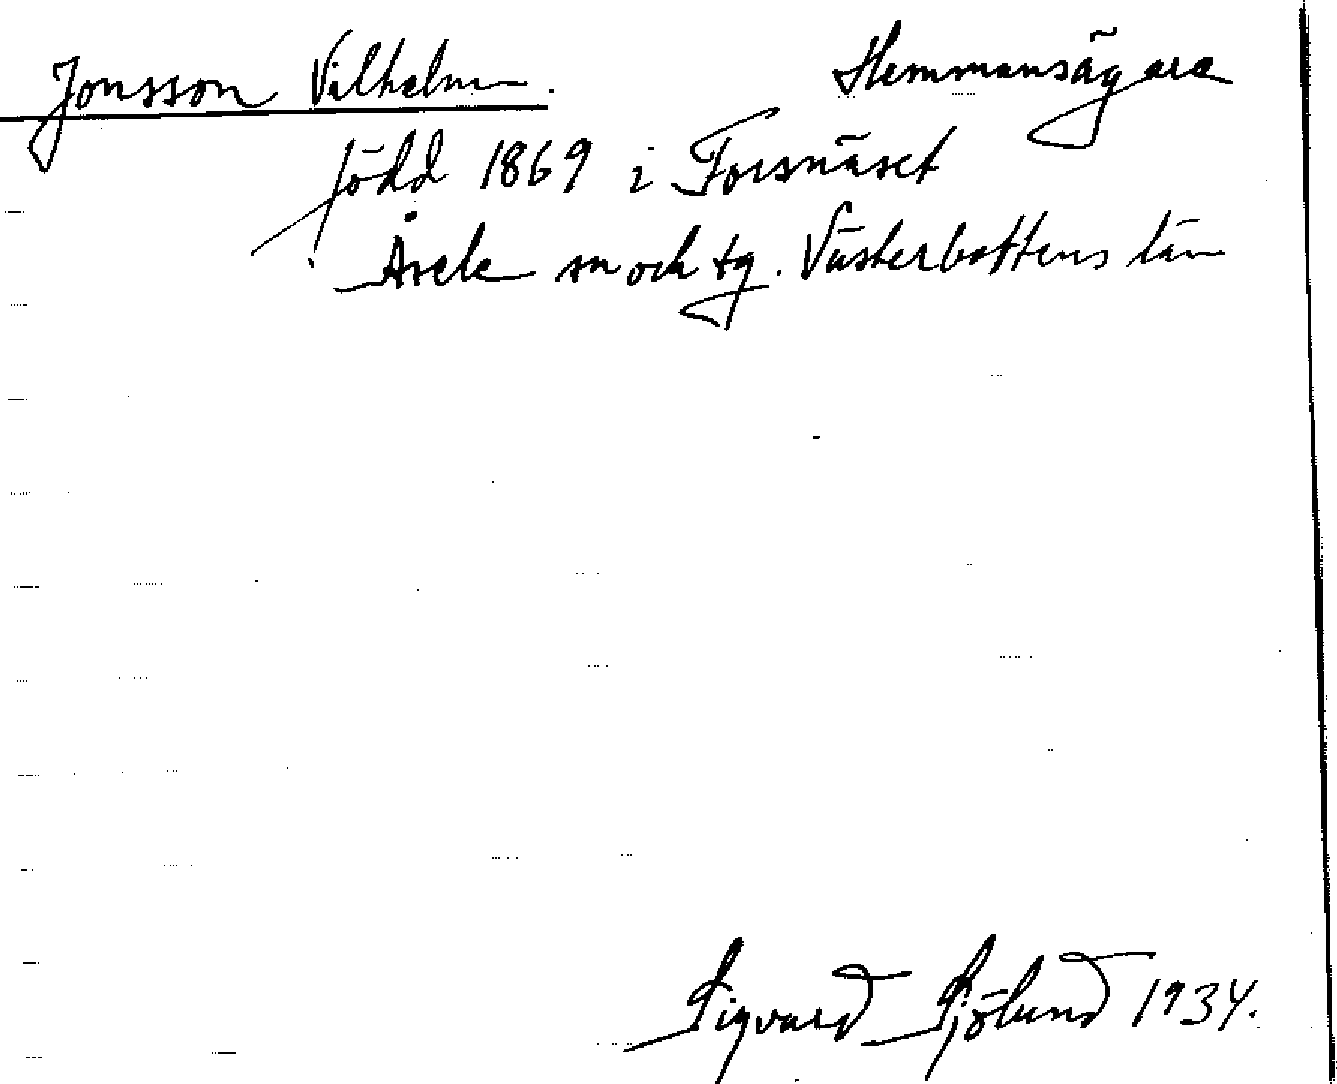 Jonsson Vilhelm. Hemmansägare
född 1869 i Forsnäset
Åsele sn och tg. Västerbottens län
Sigvard Sjölund 1934.